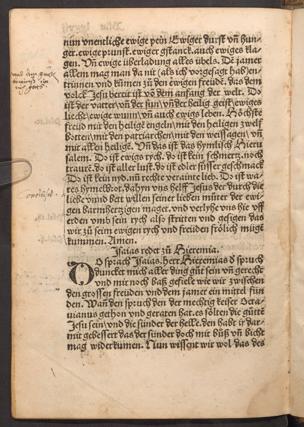 nun vnentliche ewige pein Ewiger durst vñ hun-
ger. ewige prunst. ewiger gstanck. auch ewiges kla-
gen. Vñ ewige überladung alles übels. Dē jamer
allem mag man da nit (als ich vorgesagt hab) en-
trinnen vnd kumen zů den ewigen freuden. das dem
volck Jesu bereit ist vō dem anfang der welt. Do
ist der vatter/vñ der sun/vñ der heilig geist/ewiges
liecht/ewige wunn/vñ auch ewigs leben. Höchste
freud mit den heilige engeln/mit den heiligen zwelf
botten/mit den patriarchen/mit den weissagen/vñ
mit allen heiligē. Vñ das ist das hymlisch Hieru
salem. Do ist ewigs rych. do ist kein schmertz. noch
traurē. do ist aller lust. do ist aller süsser geschmack
Do ist kein nyd. nūn rechte vereinte lieb. Do ist wa
res hymelbrot. dahyn vns helff Jesus der durch die
liebe vnnd bett willen seiner lieben můter der ewi-
gen barmhertzigen mager. vnd verlyhe vns hie vff
erden vmb sein rych also stritten vnd gesigen das
wir zů seim ewigen rych vnd freuden frölich mügē
kummen. Amen.
Isaias redet zů Hieremia.
DO sprach Isaias. herr Hieremias d spruch
duncket mich aller ding gůt sein vñ gerecht
vnd mit noch baß gefiele wie wir zwischen
den grossen freuden vnd dem jamer ein mittel fün
den. Wañ den spruch den der mechtig keiser Octa
uianus gethon vnd geraten hat. es sölten die gütte
Jesu sein/vnd die sünder der helle. den habt ir dar-
mit gebessert das der sünder doch mit bůß vñ bicht
mag widerkumen. Nun wissent wir wol das des